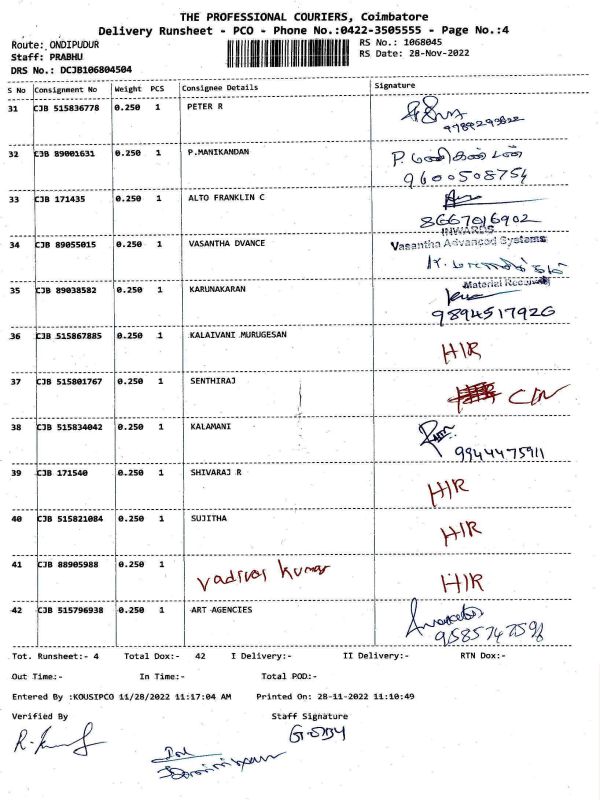 THE PROFESSIONAL COURIERS, Coimbatore
Delivery Runsheet - PCO - Phone No.:0422-3505555 - Page No.:4
Route: ONDIPUDUR RS No.: 1068045
Staff: PRABHU RS Date: 28-Nov-2022
DRS No.: DCJB106804504
S No Consignment No Weight PCS Consignee Details Signature
31 CJB 515836778 0.250 1 PETER R
32 CJB 89001631 0.250 1 P.MANIKANDAN P. மணிகண்டன்
9600508754
33 CJB 171435 0.250 1 ALTO FRANKLIN C
8667016902
INWARDS
34 CJB 89055015 0.250 1 VASANTHA DVANCE Vasantha Advanced Systems
Material Received
35 CJB 89038582 0.250 1 KARUNAKARAN
9894517926
36 CJB 515867885 0.250 1 KALAIVANI MURUGESAN HIR
37 CJB 515801767 0.250 1 SENTHIRAJ
38 CJB 515834042 0.250 1 KALAMANI
9944475911
39 CJB 171540 0.250 1 SHIVARAJ R HIR
40 CJB 515821084 0.250 1 SUJITHA HIR
41 CJB 88905988 0.250 1 Vadivel Kumar HIR
42 CJB 515796938 0.250 1 ART AGENCIES
Tot. Runsheet:- 4 Total Dox:- 42 I Delivery:- II Delivery:- RTN Dox:-
Out Time:- In Time:- Total POD:-
Entered By :KOUSIPCO 11/28/2022 11:17:04 AM Printed On: 28-11-2022 11:10:49
Verified By Staff Signature